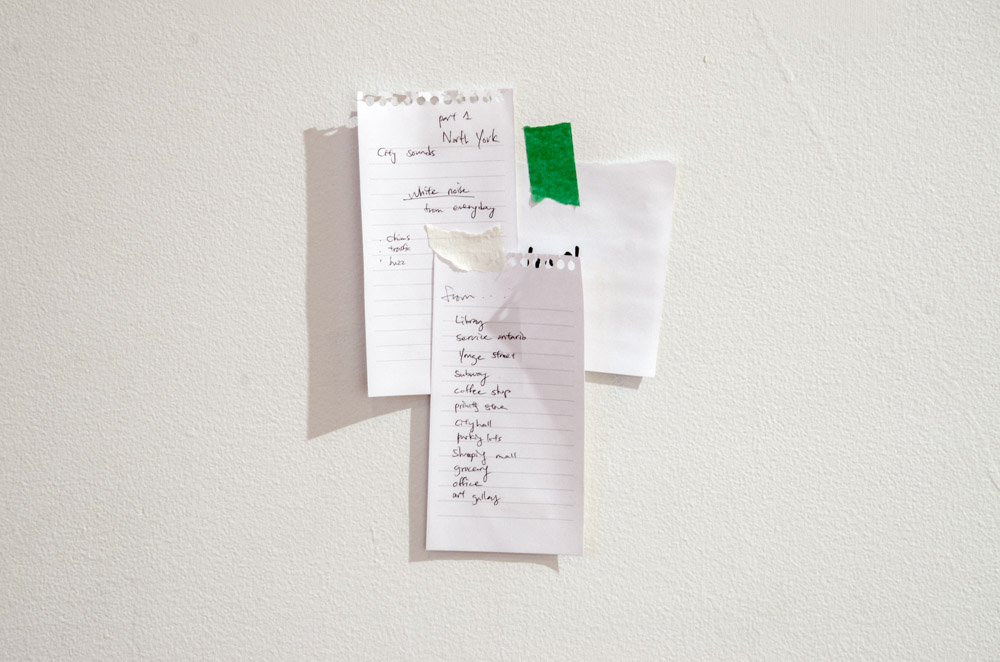 part 1
North York
City sounds
white noise
from everyday
· chims
· traffic
· buzz
from....
Library
service ontario
Yonge street
subway
coffee shop
printing store
city hall
parking lots
shopping mall
grocery
office
art gallery